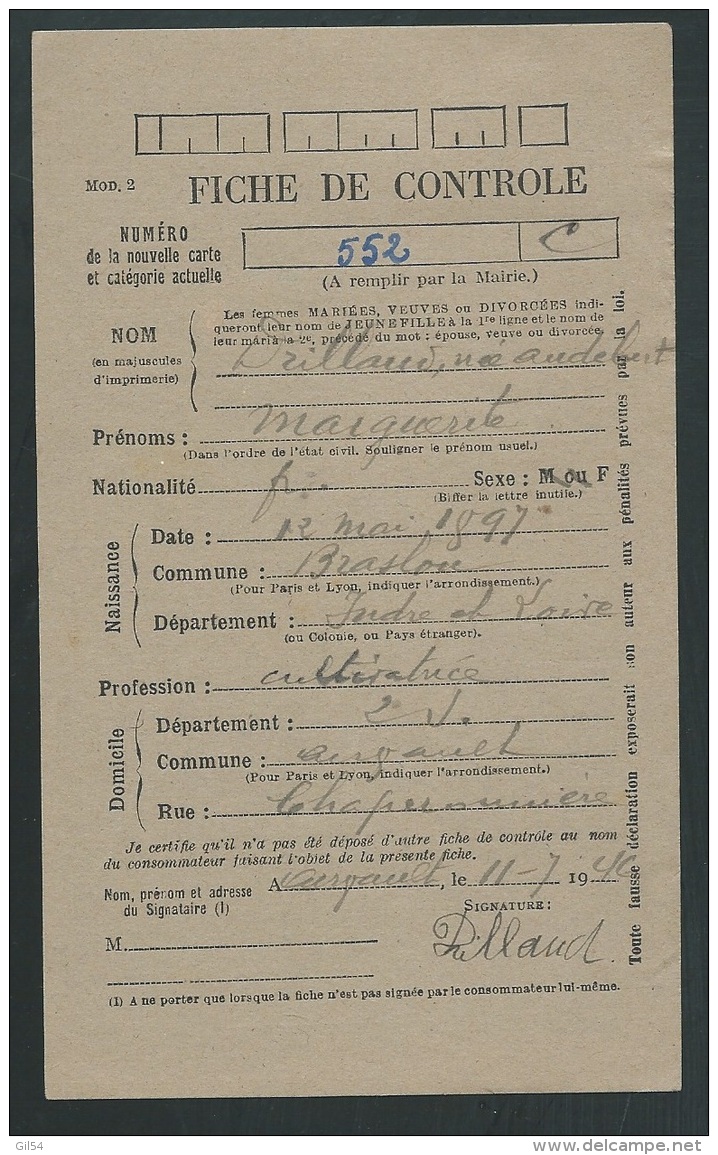 MOD. 2
FICHE DE CONTROLE
NUMÉRO
de la nouvelle carte
et catégorie actuelle
552
C
(A remplir par la Mairie.)
NOM
(en majuscules
d'imprimerie)
Les femmes MARIÉES, VEUVES ou DIVORCÉES indi-
queront leur nom de JEUNE FILLE à la 1re ligne et le nom de
leur mari à la 2e, précédé du mot : épouse, veuve ou divorcée.
née audebert
Prénoms : Marguerite
(Dans l'ordre de l'état civil. Souligner le prénom usuel.)
Nationalité fse Sexe : M ou F
(Biffer la lettre inutile.)
Naissance
Date : 12 mai 1897
Commune : Braslou
(Pour Paris et Lyon, indiquer l'arrondissement.)
Département : Indre et Loire
(ou Colonie, ou Pays étranger).
Profession : cultivatrice
Domicile
Département : 2 S.
Commune : airvault
(Pour Paris et Lyon, indiquer l'arrondissement.)
Rue :
Je certifie qu'il n'a pas été déposé d'autre fiche de contrôle au nom
du consommateur faisant l'objet de la présente fiche.
A airvault, le 11-7 1946
Nom, prénom et adresse
du Signataire (1)
SIGNATURE :
M.
(1) A ne porter que lorsque la fiche n'est pas signée par le consommateur lui-même.
Toute fausse déclaration exposerait son auteur aux pénalités prévues par la loi.
Gil54
delcampe.net